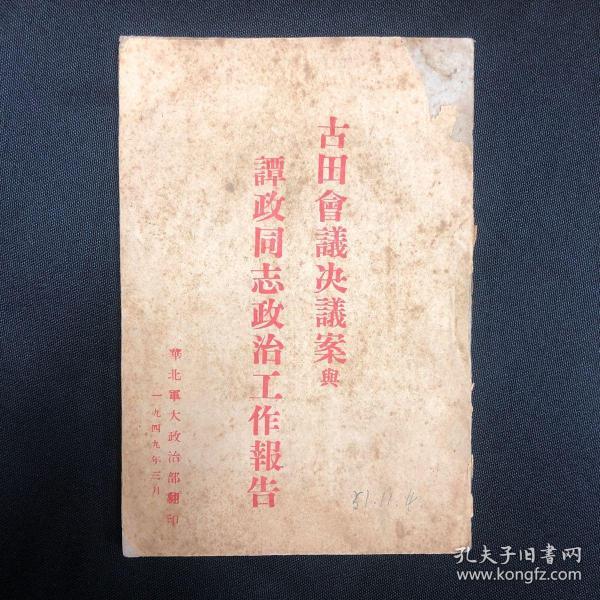 古田會議决議案與
譚政同志政治工作報告
華北軍大政治部翻印
一九四九年三月
51.11.4
孔夫子旧书网
www.kongfz.com